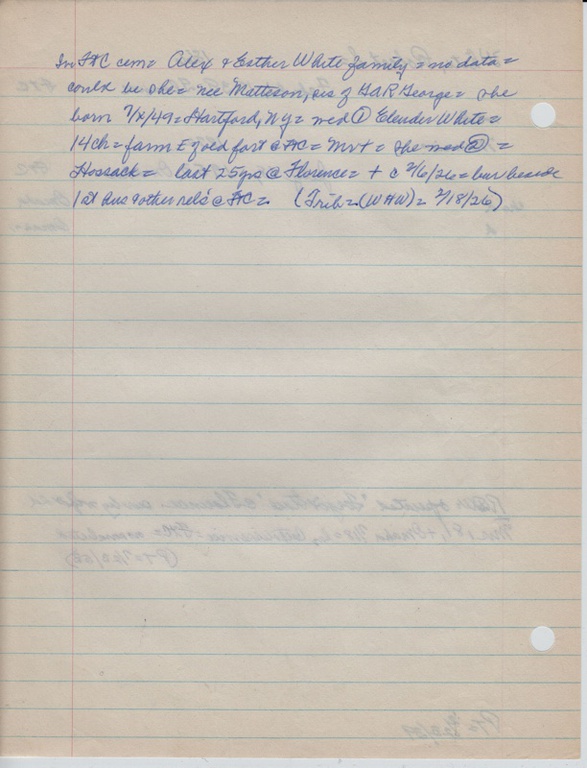 In FtC cem = Alex & Esther White family = no data =
could be she = nee Matteson, sis of GAR George = she
born 7/x/49 = Hartford, NY = med ① Elender White =
14ch = farm E of old fort @ FtC = Mvt = she med ② =
Hossack = last 25 yrs @ Florence = + c 2/6/26 = bur beside
1st hus & other rels @ FtC = (Trib = (WHW) = 2/18/26)